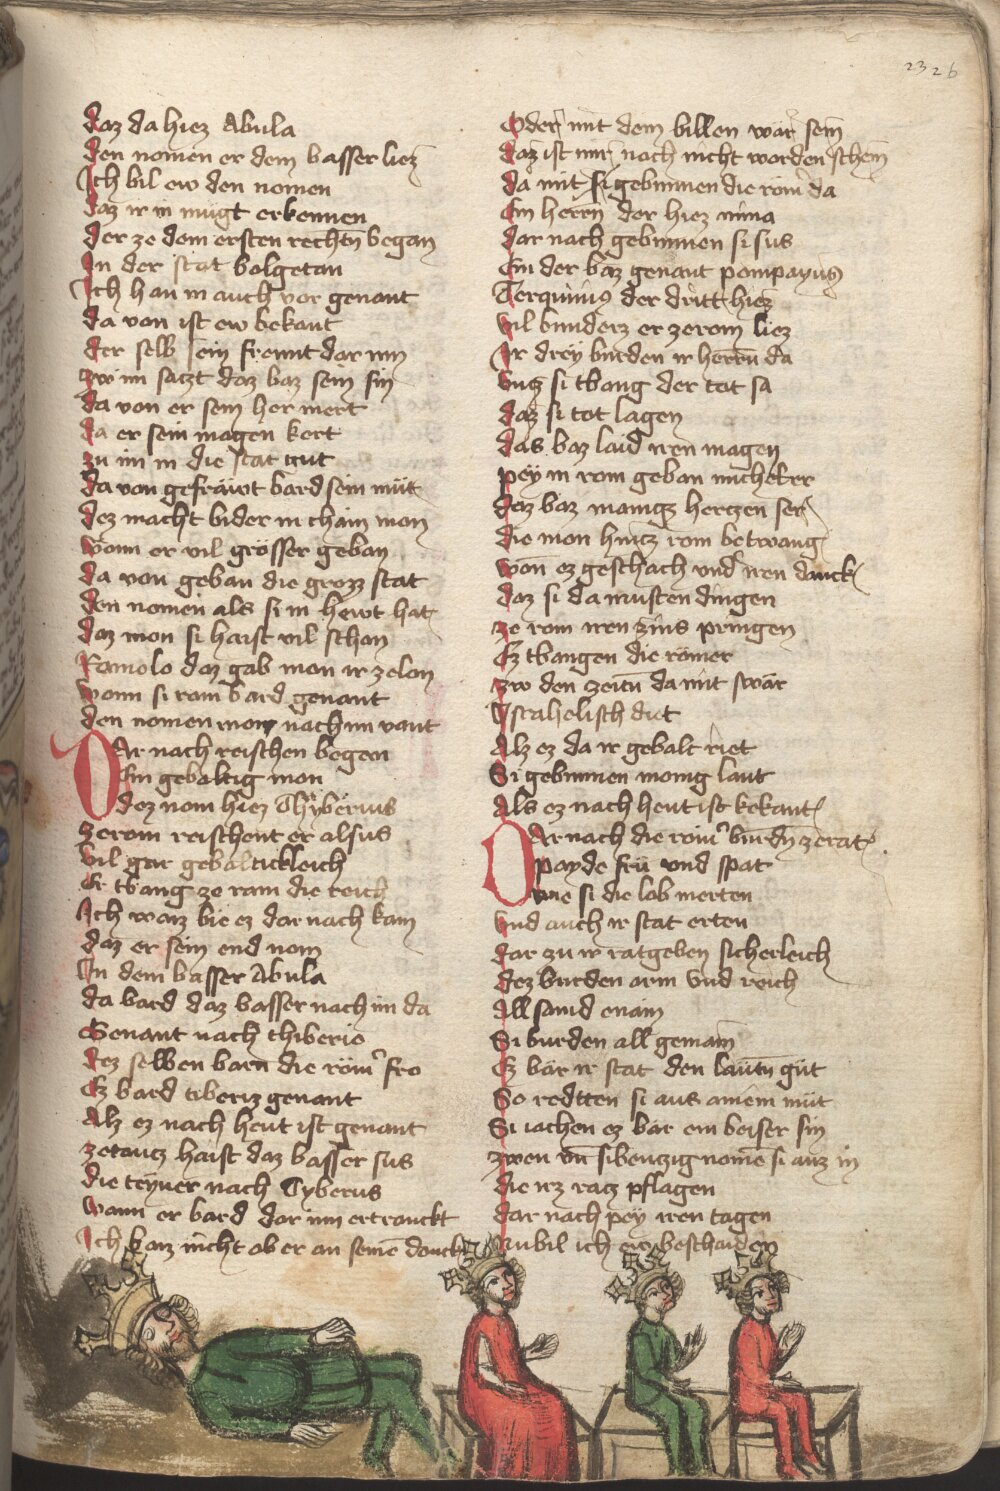 232 b
daz da hiez Abula
den nomen er dem basser liez
Ich bil ew den nomen
daz ir in mügt erkennen
der ze dem ersten rechtñ began
In der stat bolgetan
Ich han in auch vor genant
da von ist ew bekant
der selb sein freunt dar inn
zw im satzt daz baz sein sin
da von er sein her mert
da er sein magen kert
zu im in die stat gut
da von gefräwt bard sein müt
dez macht bider in chain mon
wonn er vil grösser geban
da von geban die grozz stat
den nomen als si in hewt hat
daz mon si haist vil schon
Romolo daz gab mon ir zelon
wonn si rom bard genant
den nomen mon nach im vant
DAr nach reischen began
Ein gebaltig mon
dez nom hiez Thyberius
zerom reischent er alsus
vil gar gebaltickleich
Er tbang ze rom die reich
Ich waiz bie ez dar nach kam
daz er sein end nom
In dem basser Abula
da bard daz basser nach im da
Genant nach thiberio
dez selben barn die röm' fro
Ez bard tiberiz genant
Alz ez nach heut ist genant
zetautz haist daz basser sus
die teyuer nach Tyberus
wann er bard dar inn ertranckt
Ich kaiz nicht ob er an seinē danck
Oder mit dem billen wär sein
daz ist mir noch nicht worden schein
da mit si gebunnen die röm' da
Ein herrn der hiez nuna
dar nach gebunnen si sus
Ein der baz genant pompayus
Terquinus der dritt hiez
vil bunderz er zerom liez
Ir drey burden ir herrn da
vntz si tbang der tot sa
daz si tot lagen
das baz laid iren magen
pey in rom geban micheler
daz baz manigz hertzen ser
die mon hintz rom betwang
won ez geschach vnd' iren danck
daz si da musten dingen
ze rom iren zins pringen
Ez tbangen die römer
zw den zeitñ da mit swär
Israhelisch diet
Alz ez da ir gebalt riet
Si gebunnen monig laut
Als ez nach heut ist bekant
DAr nach die röm' burdñ zerat
payde frü vnd spat
wie si die lob merten
vnd auch ir stat erten
dar zu ir ratgeben sicherleich
dez burden arm vnd reich
All samd enain
Si burden all gemain
Ez bär ir stat den lautñ güt
So redtten si aus ainem müt
Si iachen ez bär ein beiser sin
zwen vñ sibentzig nomē si auz in
die irz ratz pflagen
dar nach pey iren tagen
Nu bil ich ew beschaiden